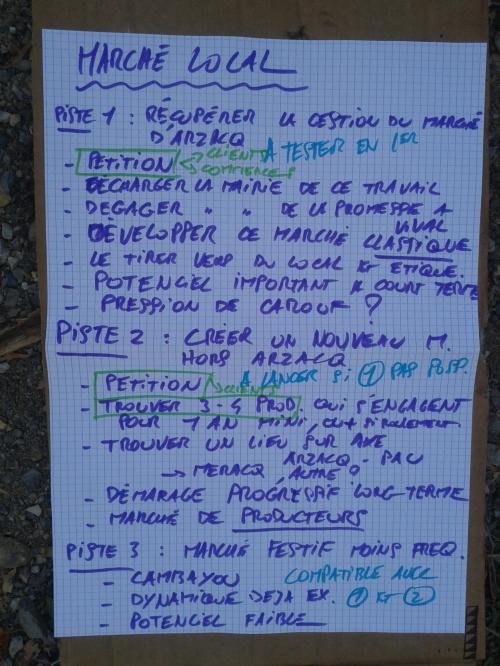 MARCHÉ LOCAL
PISTE 1 : RÉCUPÉRER LA GESTION DU MARCHÉ
D'ARZACQ
- PETITION CLIENTS À TESTER EN 1ER
COMMERCES
- DÉCHARGER LA MAIRIE DE CE TRAVAIL
- DÉGAGER " " DE LA PROMESSE A
VIVAL
- DÉVELOPPER CE MARCHÉ CLASTIQUE
- LE TIRER VERS DU LOCAL ET ETIQUE.
- POTENCIEL IMPORTANT À COURT TERME
- PRESSION DE CAROUF ?
PISTE 2 : CRÉER UN NOUVEAU M.
HORS ARZACQ
- PETITION CLIENTS À LANCER SI 1 PAS POSS.
- TROUVER 3-4 PROD. QUI S'ENGAGENT
POUR 1 AN MINI,
- TROUVER UN LIEU SUR AXE
ARZACQ - PAU
→ MERACQ, AUTRE ?
- DÉMARAGE PROGRESSIF LONG TERME
- MARCHÉ DE PRODUCTEURS
PISTE 3 : MARCHÉ FESTIF MOINS FREQ.
- CAMBAYOU COMPATIBLE AVEC
- DYNAMIQUE DEJA EX. 1 ET 2
- POTENCIEL FAIBLE